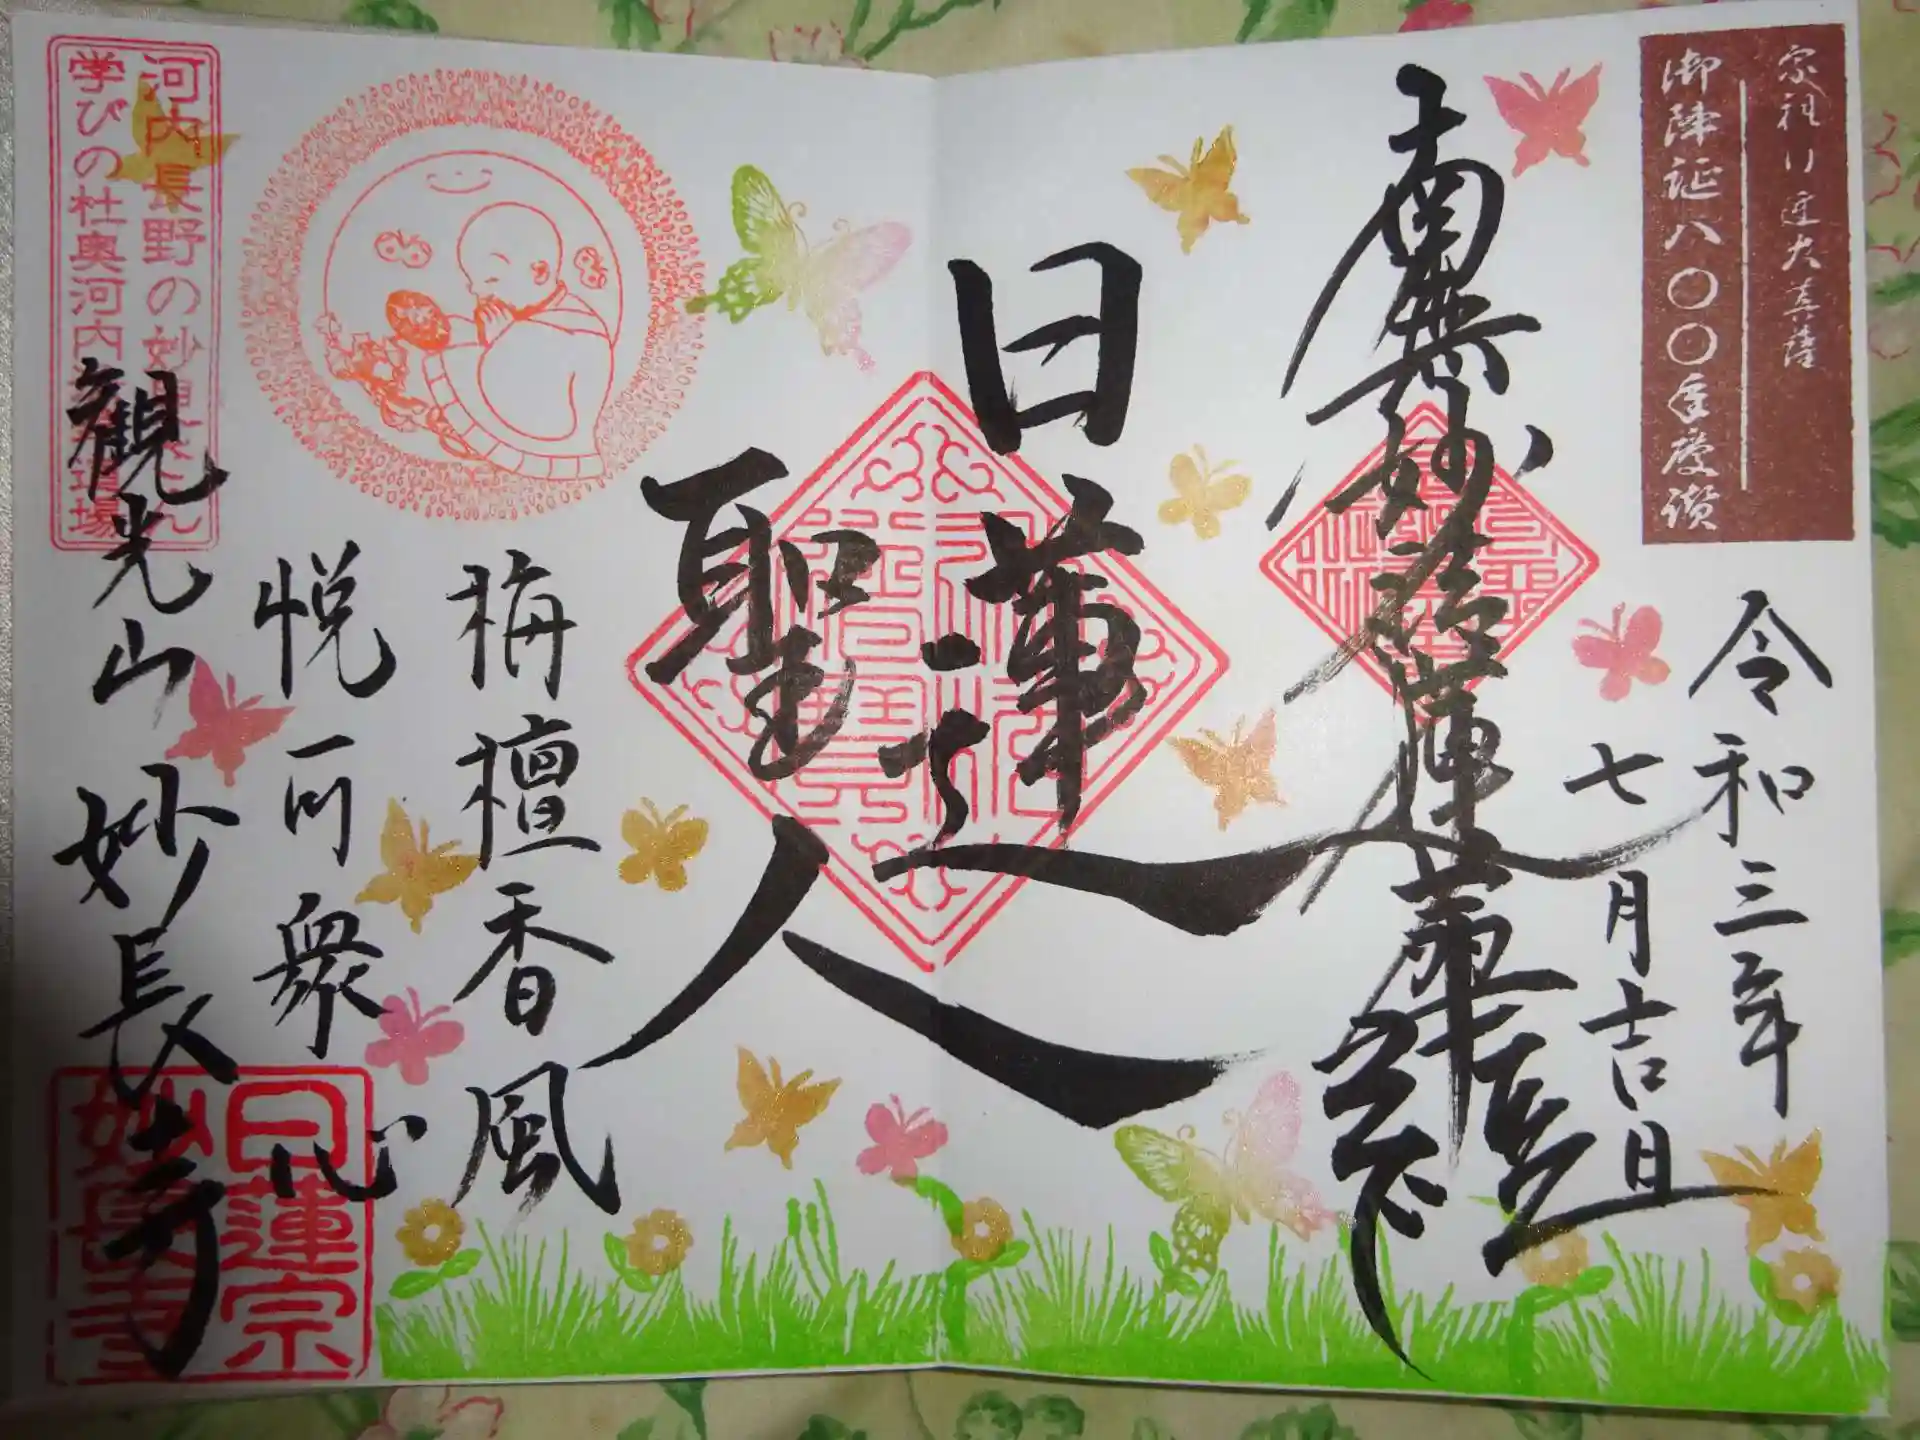 御降誕八〇〇年慶讃
令和三年
七月吉日
南無妙法蓮華経
日蓮
聖人
栴檀香風
悦可衆心
河内長野の妙見さん
学びの杜奥河内
道場
観光山妙長寺
日蓮宗
妙長寺